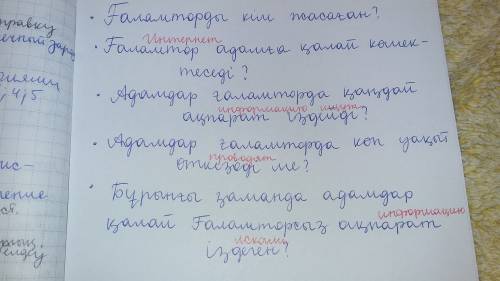 правку
• Ғаламторды кім жасаған?
Интернет
• Ғаламтор адамға қалай көмек-
теседі?
• Адамдар ғаламторда қандай
информацию ищут
ақпарат іздейді?
• Адамдар ғаламторда көп уақыт
проводят
өткізеді ме?
• Бұрынғы заманда адамдар
қалай Ғаламторсыз ақпарат
информацию
искали
іздеген?
4,5
ис-
ление